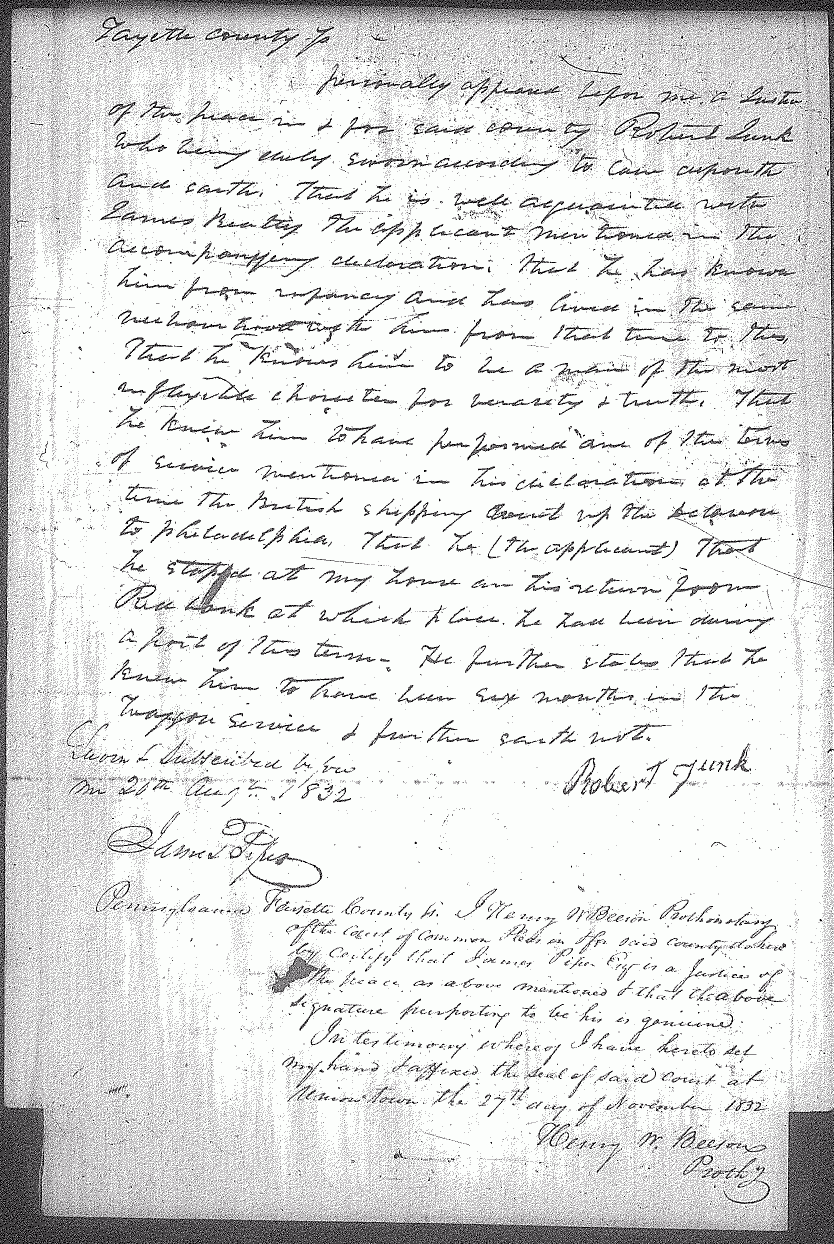 Fayette County ss
personally appeared before me a Justice
of the peace in & for said county Robert Junk
who being duly sworn according to law deposeth
and saith. That he is well acquainted with
James Beatty the applicant mentioned in the
accompanying declaration. that he has known
him from infancy and has lived in the same
with him from that time to this
That he knows him to be a man of the most
inflexible character for verasity & truth. That
he knew him to have performed one of the terms
of service mentioned in his declaration at the
time the British shipping up the
to philadelphia. That he (the applicant) That
he stoped at my house on his return from
Red bank at which place he had been during
a part of this term. He further states that he
knew him to have been six months in the
waggon service & further saith not.
Sworn & Subscribed before
me 20th Augt. 1832
Robert Junk
James Piper
Pennsylvania Fayette County ss. I Henry W Beeson Prothonotary
of the Court of Common Pleas in & for said county do here
by certify that James Piper Esqr is a Justice of
the peace as above mentioned & that the above
signature purporting to be his is genuine
In testimony whereof I have hereto set
my hand & affixed the seal of said court at
Uniontown the 27th day of November 1832
Henry W. Beeson
Prothy